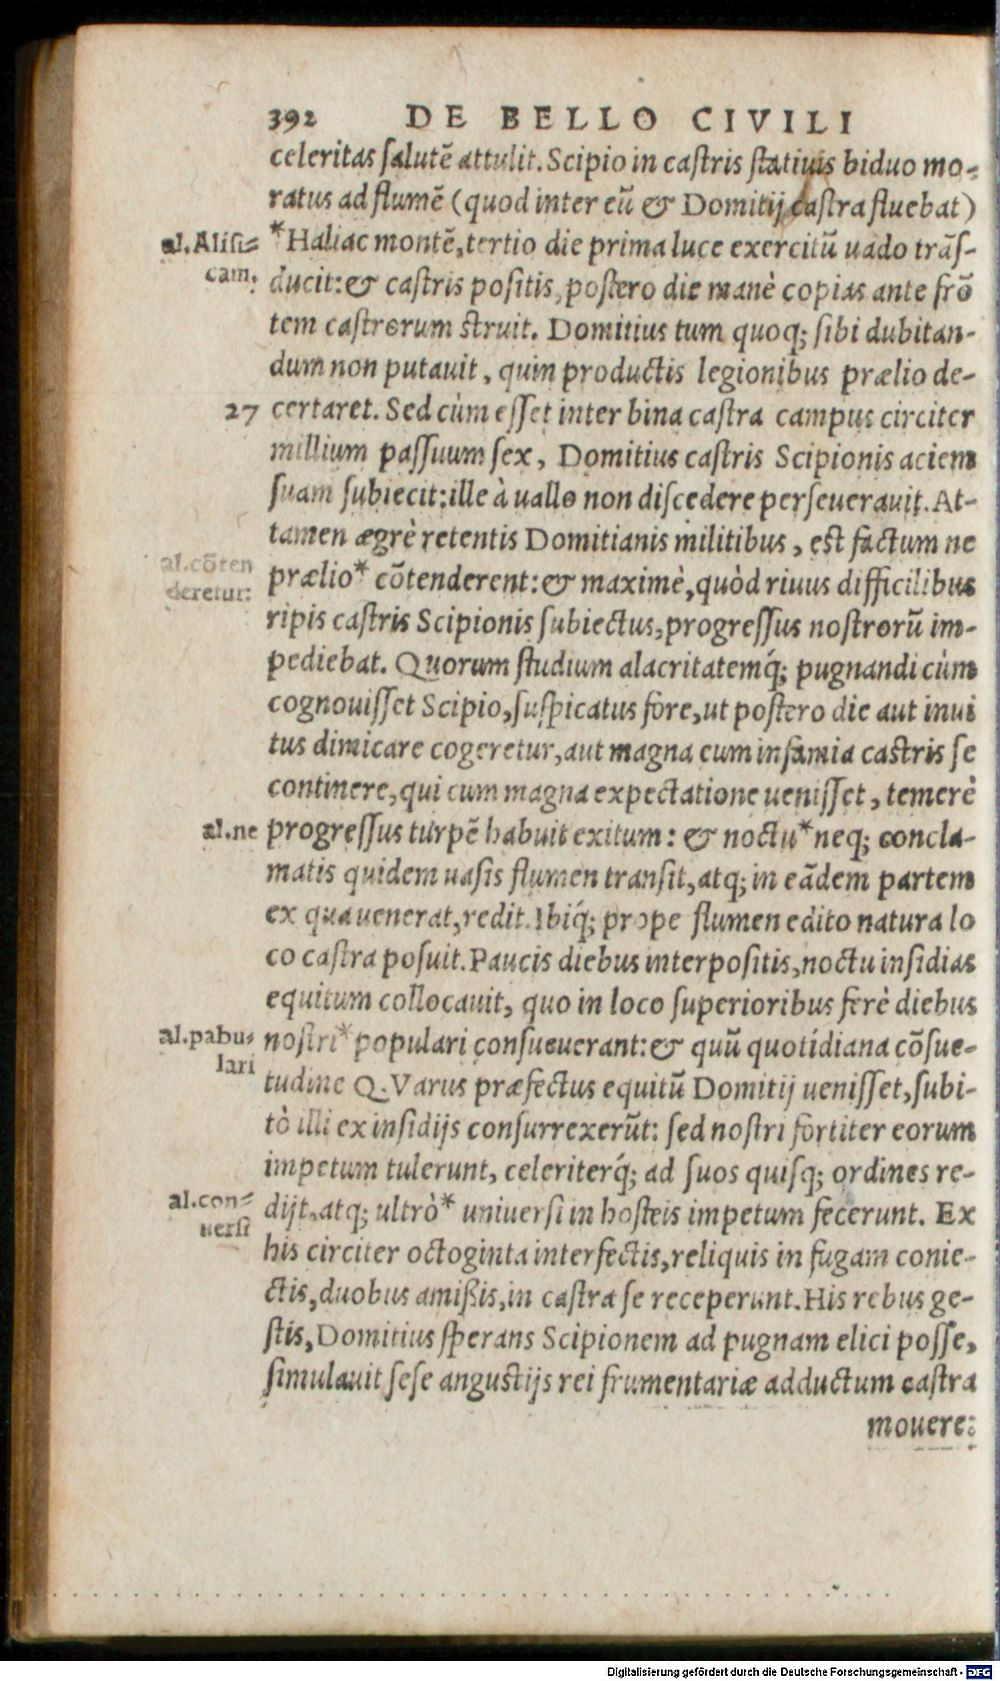 392 DE BELLO CIVILI
celeritas ſalutẽ attulit. Scipio in caſtris ſtatiuis biduo mo-
ratus ad flumẽ (quod inter eũ & Domitij caſtra fluebat)
al. Aliſi= *Haliac montẽ, tertio die prima luce exercitũ uado trãſ-
cam. ducit: & caſtris poſitis, poſtero die manè copias ante frõ
tem caſtrorum ſtruit. Domitius tum quoq; ſibi dubitan-
dum non putauit, quin productis legionibus prælio de-
27 certaret. Sed cùm eſſet inter bina caſtra campus circiter
millium paſſuum ſex, Domitius caſtris Scipionis aciem
ſuam ſubiecit: ille à uallo non diſcedere perſeuerauit. At-
tamen ægrè retentis Domitianis militibus, eſt factum ne
al. cõten prælio* cõtenderent: & maximè, quòd riuus difficilibus
deretur: ripis caſtris Scipionis ſubiectus, progreſſus noſtrorũ im-
pediebat. Quorum ſtudium alacritatemq́; pugnandi cùm
cognouiſſet Scipio, ſuſpicatus fore, ut poſtero die aut inui
tus dimicare cogeretur, aut magna cum infamia caſtris ſe
continere, qui cum magna expectatione ueniſſet, temerè
al. ne progreſſus turpẽ habuit exitum: & noctu* neq; concla-
matis quidem uaſis flumen tranſit, atq; in eãdem partem
ex qua uenerat, redit. Ibiq́; prope flumen edito natura lo
co caſtra poſuit. Paucis diebus interpoſitis, noctu inſidias
equitum collocauit, quo in loco ſuperioribus ferè diebus
al. pabu= noſtri* populari conſueuerant: & quũ quotidiana cõſue-
lari tudine Q. Varus præfectus equitũ Domitij ueniſſet, ſubi-
tò illi ex inſidijs conſurrexerũt: ſed noſtri fortiter eorum
impetum tulerunt, celeriterq́; ad ſuos quiſq; ordines re-
al. con= dijt, atq; ultrò* uniuerſi in hoſteis impetum fecerunt. Ex
uerſi his circiter octoginta interfectis, reliquis in fugam conie-
ctis, duobus amißis, in caſtra ſe receperunt. His rebus ge-
ſtis, Domitius ſperans Scipionem ad pugnam elici poſſe,
ſimulauit ſeſe anguſtijs rei frumentariæ adductum caſtra
mouere:
Digitalisierung gefördert durch die Deutsche Forschungsgemeinschaft - DFG